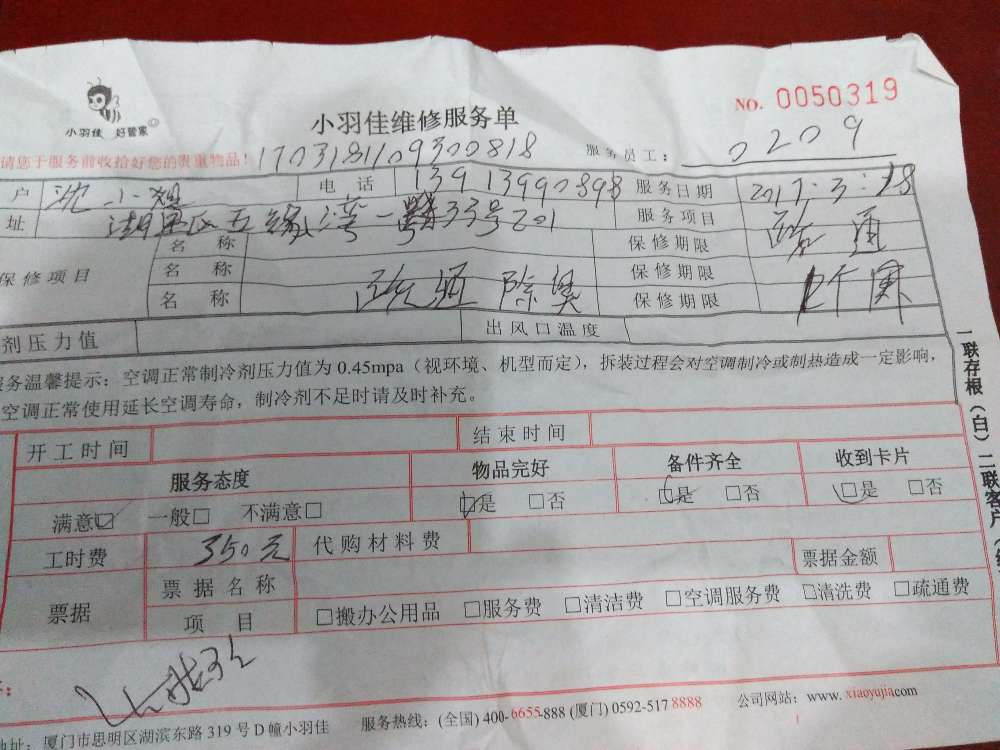 NO. 0050319
小羽佳 好管家
小羽佳维修服务单
请您于服务前收拾好您的贵重物品! 170318109300818 服务员工: 0209
户 沈小姐 电话 13913990898 服务日期 2017.3.18
址 湖里区五缘湾一号33号201 服务项目 疏通
保修项目 名称 保修期限
名称 保修期限
名称 疏通 除臭 保修期限
剂压力值 出风口温度
服务温馨提示:空调正常制冷剂压力值为 0.45mpa(视环境、机型而定),拆装过程会对空调制冷或制热造成一定影响,
空调正常使用延长空调寿命,制冷剂不足时请及时补充。
一联存根(白)二联客户
开工时间 结束时间
服务态度 物品完好 备件齐全 收到卡片
满意☑ 一般□ 不满意□ ☑是 □否 ☑是 □否 ☑是 □否
工时费 350元 代购材料费
票据 票据名称 票据金额
项目 □搬办公用品 □服务费 □清洁费 □空调服务费 □清洗费 □疏通费
地址:厦门市思明区湖滨东路 319 号 D 幢小羽佳 服务热线:(全国) 400-6655-888 (厦门) 0592-517 8888 公司网站:www. xiaoyujia.com